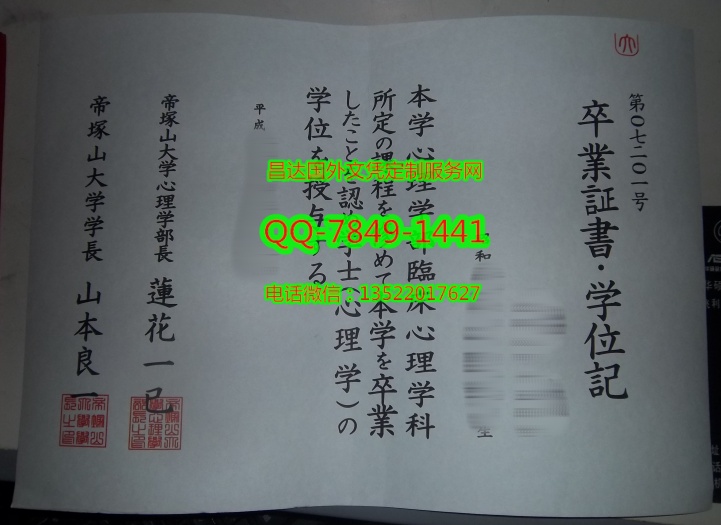 第〇七二〇一号
卒業証書・学位記
和
生
本学心理学部臨床心理学科
所定の課程を修めて本学を卒業
したことを認め学士（心理学）の
学位を授与する
平成
帝塚山大学心理学部長 蓮花一已
帝塚山大学学長 山本良一
昌达国外文凭定制服务网
QQ-7849-1441
电话微信：13522017627